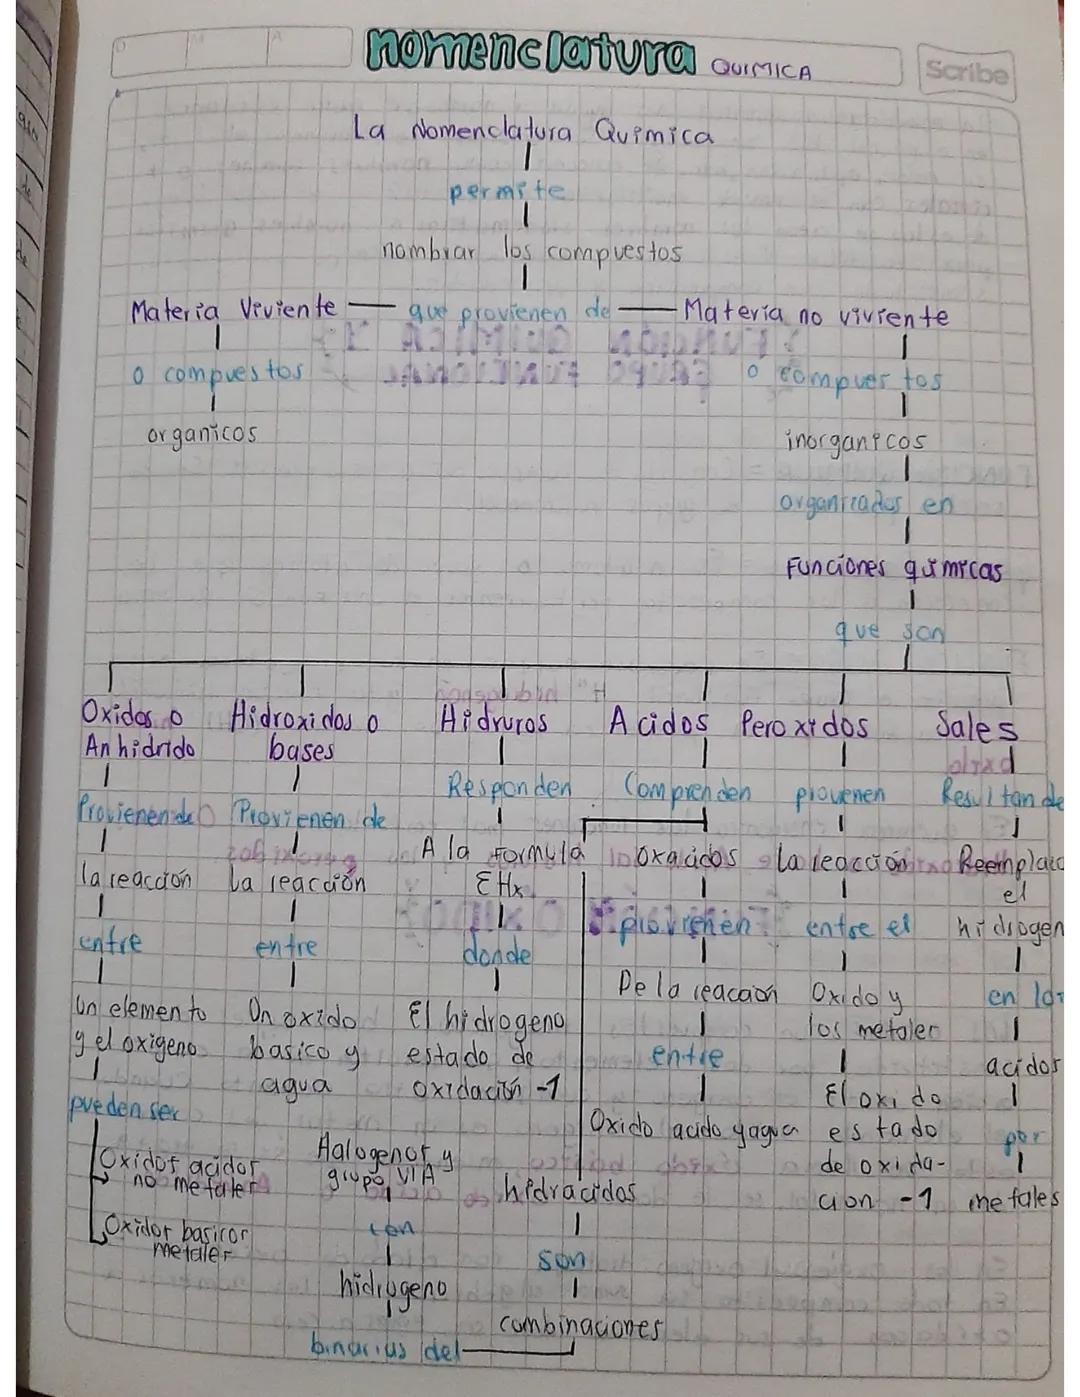 nomenclatura QUIMICA
Scribe
La Nomenclatura Quimica
permite
nombrar los compuestos
Materia Viviente — que provienen de — Materia no viviente
o compuestos
o compuestos
organicos
inorganicos
organizados en
Funciones quimicas
que son
Oxidos o
Anhidrido
Hidroxidos o
bases
Hidruros
Acidos
Peroxidos
Sales
Provienen de
Provienen de
Responden
Comprenden
provienen
Resultan de
la reacción
La reacción
A la formula
EHx
Oxacidos
La reacción
Reemplazar
el
hidrogen
entre
entre
donde
provienen
entre el
Un elemento
y el oxigeno
Un oxido
basico y
agua
El hidrogeno
estado de
oxidación -1
De la reacción
Oxido y
los metales
en los
pueden ser
entre
El oxido
estado
de oxida-
cion -1
acidos
Oxido acido y agua
por
metales
Oxidos acidos
no metales
Oxidos basicos
metales
Halogenos y
grupo VIA
hidracidos
con
son
hidrogeno
combinaciones
binarias del